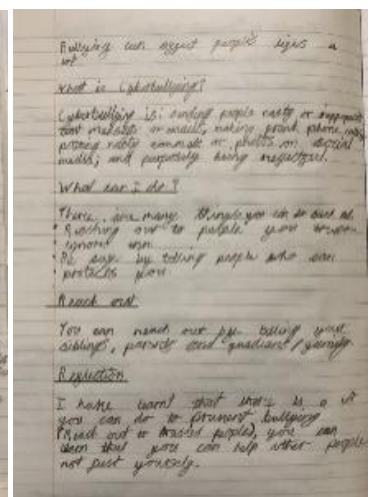 Bullying can affect people's lifes a
lot
What is Cyberbullying?
Cyberbullying is: sending people nasty or
text messages or emails, making prank phone calls
posting nasty comments or photos on social
media, and purposely being
What can I do?
There are many things you can do such as
Reaching out to people you
ignore
Be safe by telling people who can
protects you.
Reach out
You can reach out by: telling your
siblings, parents and
Reflection
I have learnt that there is a lot
you can do to prevent bullying
(Reach out to trusted people), you can
learn that you can help other people
not just yourself.